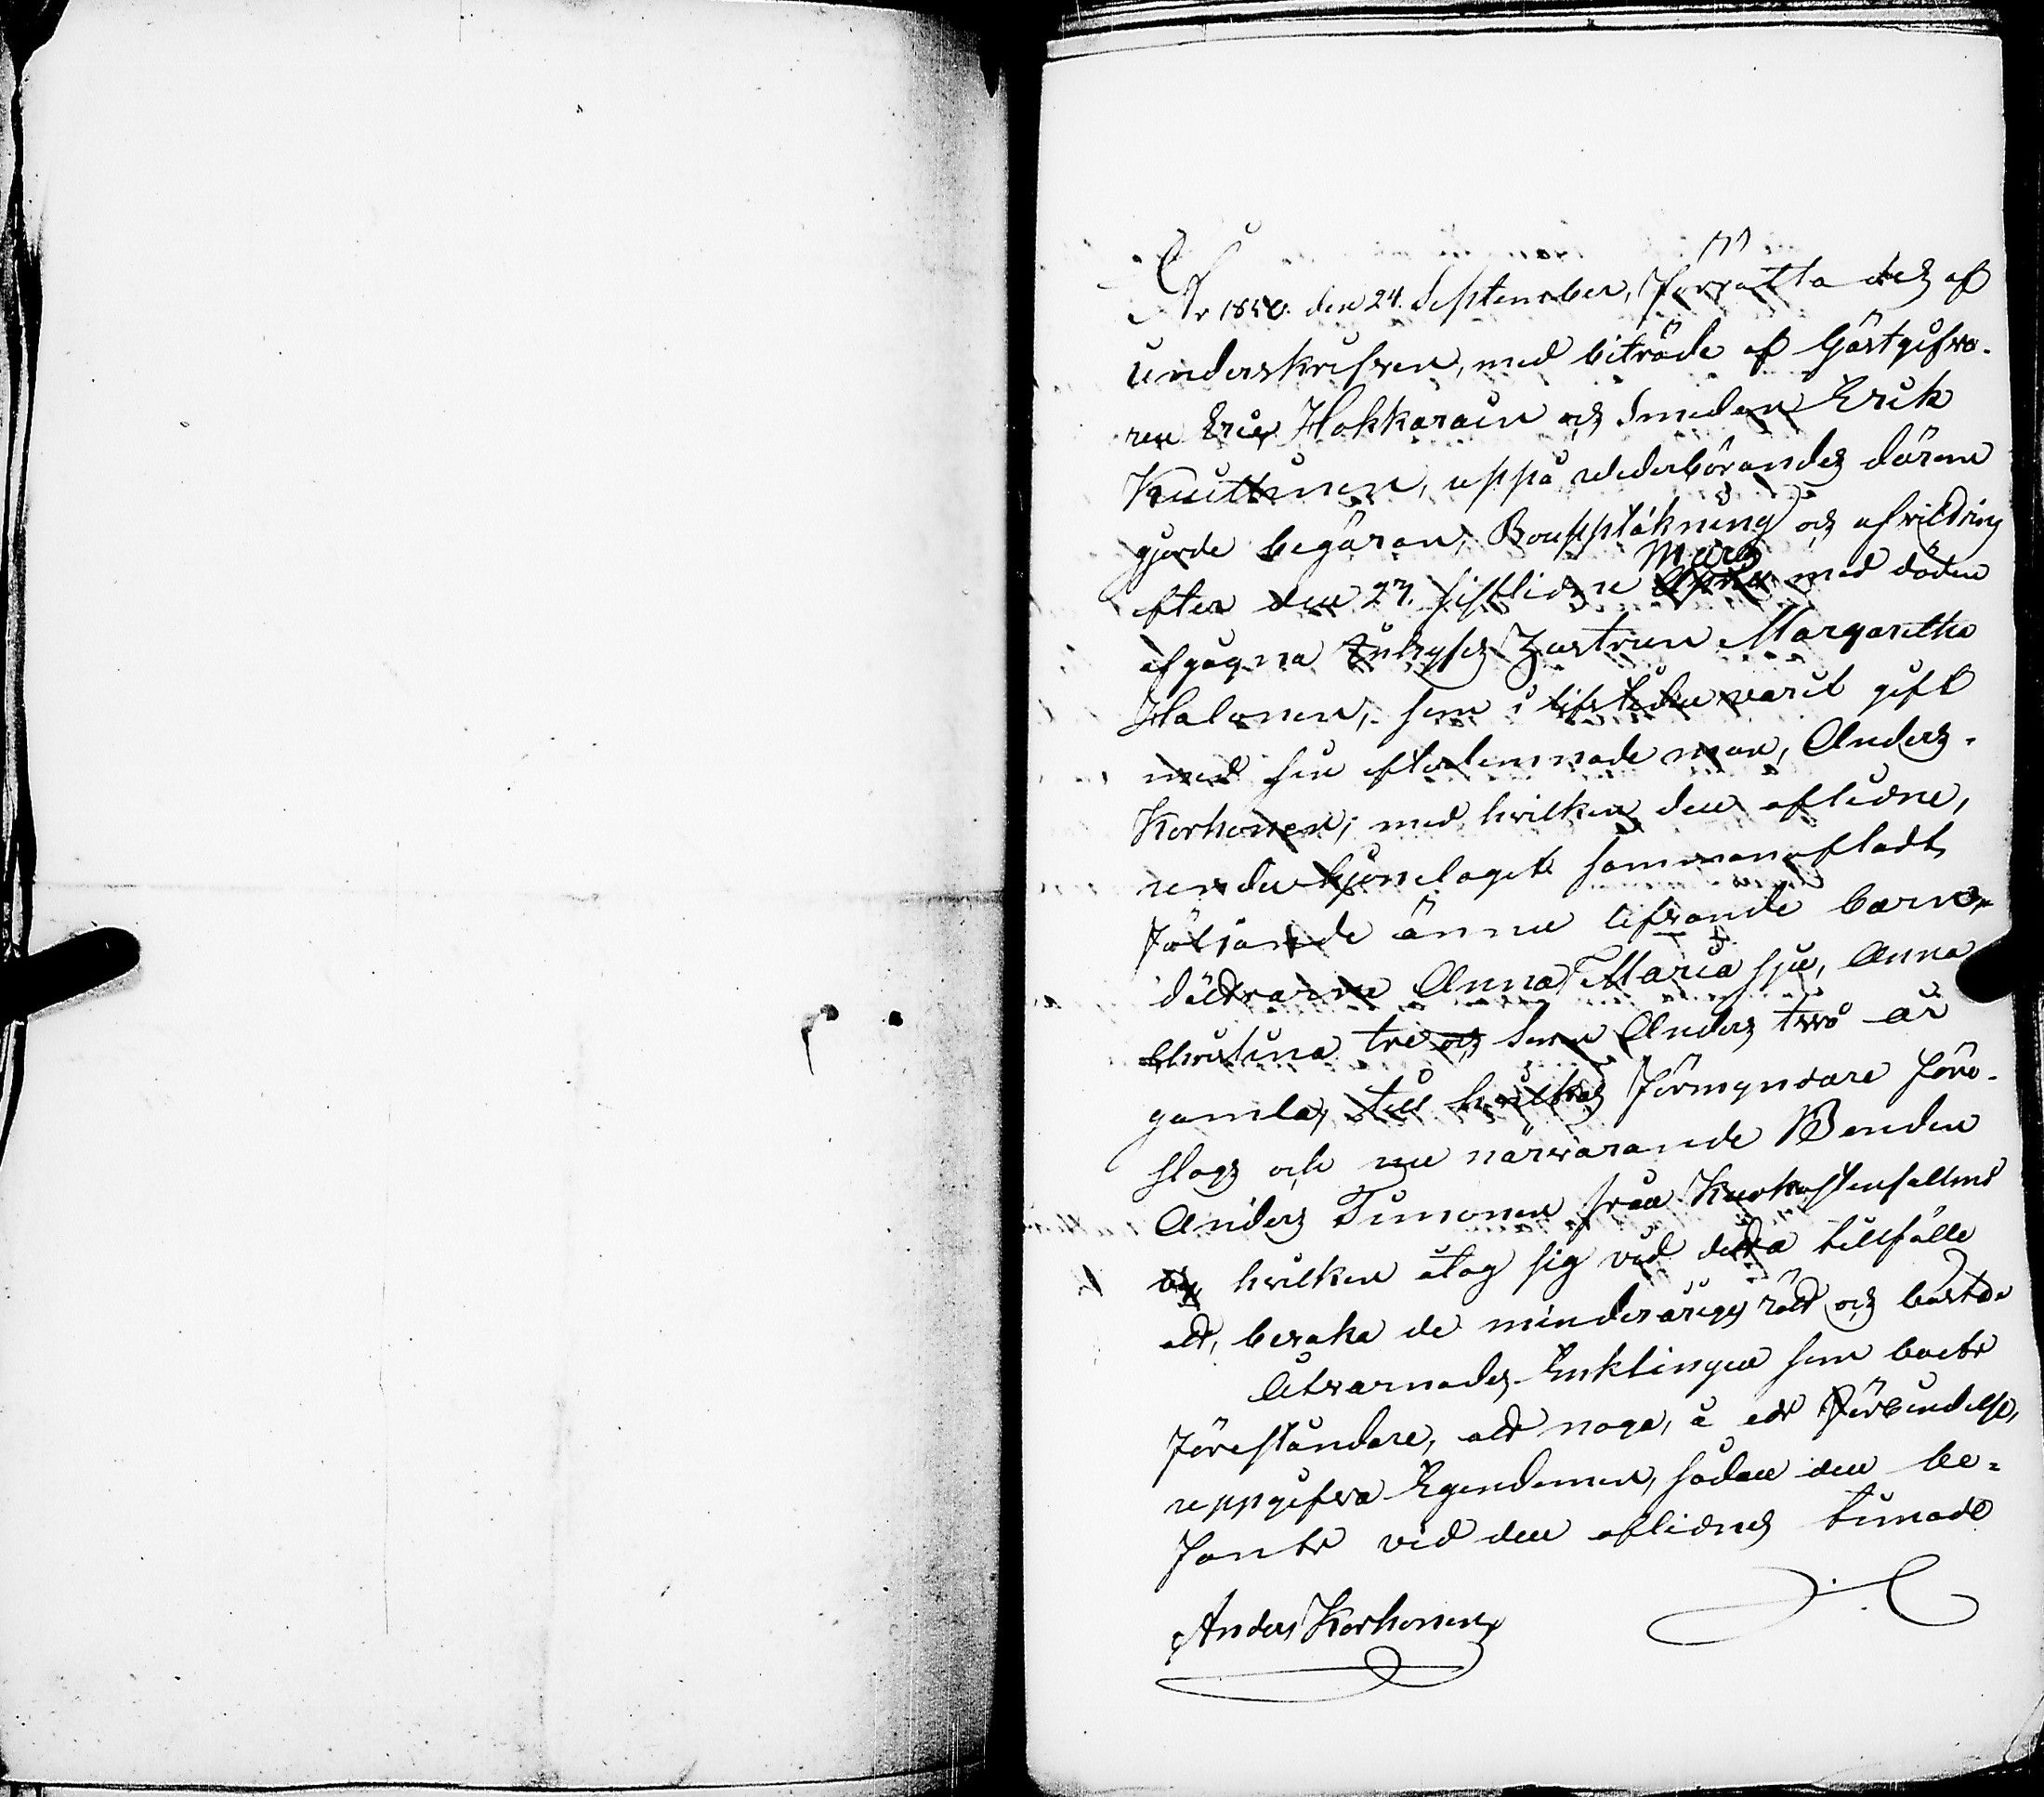 År 1850. den 24. September, förrättades af
underskrifven, med biträde af Gästgifva-
ren Eric Hokkarain och Smeden Erik
Knuttinen, uppå vederbörandes därom
gjorde begäran, Bouppteckning och afvittring
efter den 27. sistledne Mars med döden
afgågna Inhyses Hustrun Margaretha
Halonen, som i lifstiden varit gift
med sin efterlemnade man, Anders
Korhonen; med hvilken den aflidne,
under hjonelaget sammanafladt,
följande ännu lefvande barn,
döttrarne Anna Maria sju, Anna
Christina tre och Son Anders två år
gamla, till hvilkas förmyndare före-
slogs och nu närvarande Bonden
Anders Timonen från
by hvilken åtog sig vid detta tillfälle
att, bevaka de minderårigas rätt och bästa
Åtvarnades Enklingen som boets
föreståndare, att noga, å ed förbindelse,
uppgifva Egendomen, sådan den be-
fants vid den aflidnes timade
Anders Korhonen